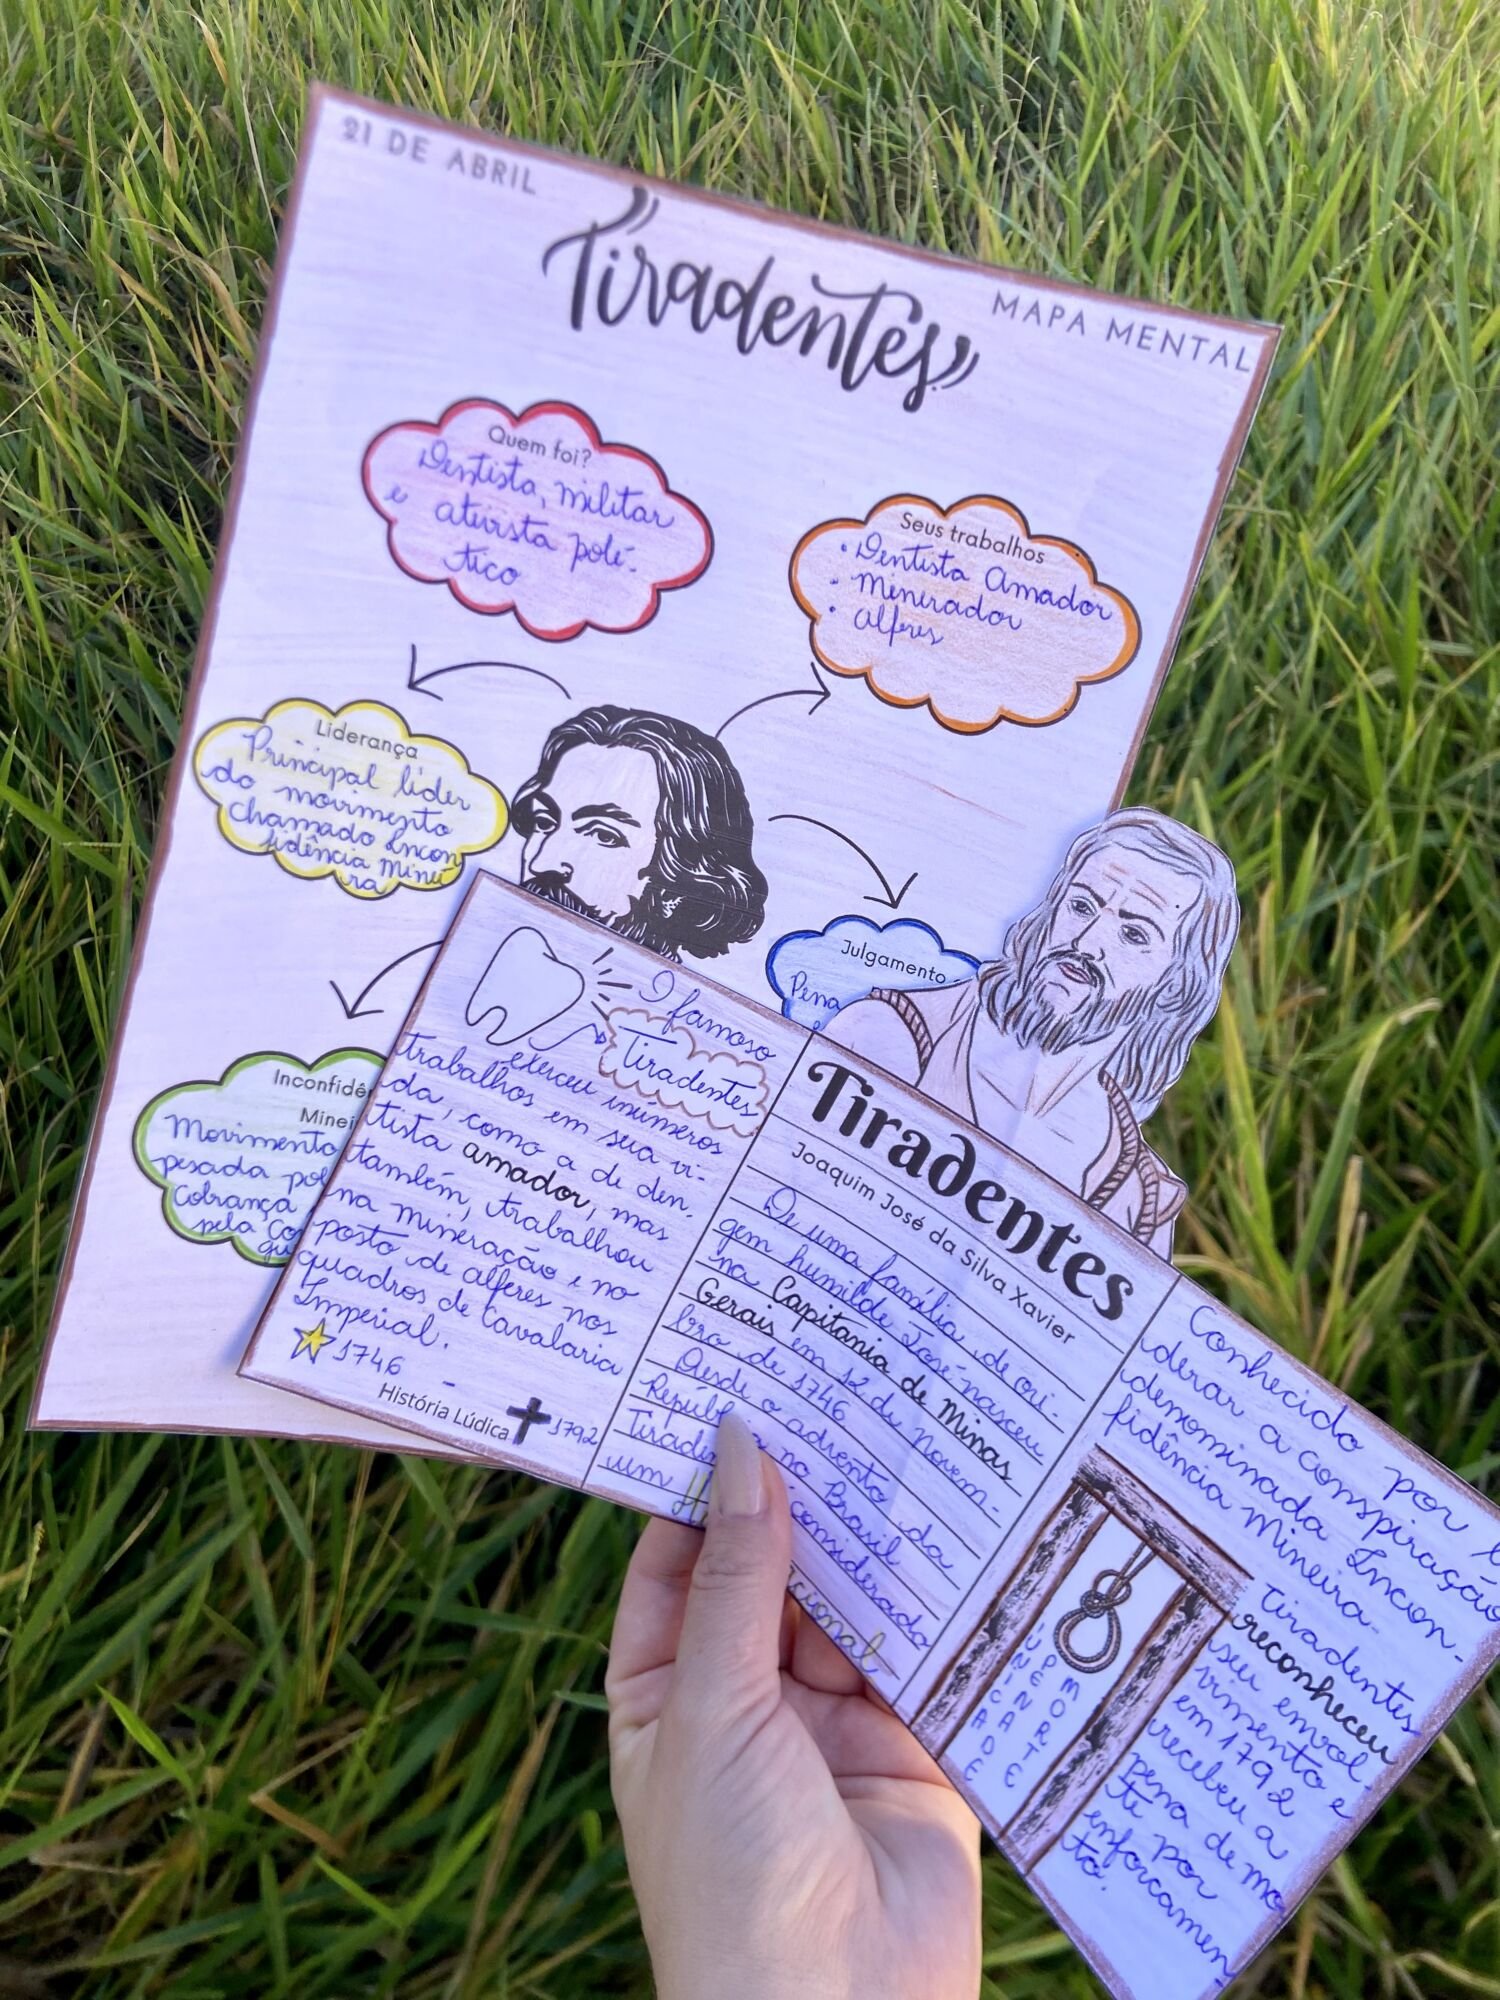 21 DE ABRIL
Tiradentes
MAPA MENTAL
Quem foi?
Dentista, militar
e ativista polí-
tico
Seus trabalhos
• Dentista Amador
• Minerador
• Alferes
Liderança
Principal líder
do movimento
Chamado Incon
fidência Minei
ra
Julgamento
Pena
Inconfidê
Minei
Movimento
pesada pol
Cobrança
pela Co
gu
O famoso
Tiradentes
exerceu inúmeros
trabalhos em sua vi-
da, como a de den-
tista amador, mas
também, trabalhou
na mineração e no
posto de alferes nos
quadros de Cavalaria
Imperial.
1746 - 1792
História Lúdica
Tiradentes
Joaquim José da Silva Xavier
De uma família de ori-
gem humilde José nasceu
na Capitania de Minas
Gerais em 12 de novem-
bro de 1746
Desde o advento da
Repúbl a no Brasil
Tiraden considerado
um
cional
Conhecido por
derar a conspiração
denominada Incon-
fidência Mineira.
Tiradentes
reconheceu
seu envol-
vimento e
em 1792
recebeu a
pena de mo
te por
enforcamen
to.
ÚNICA
PENA DE
MORTE